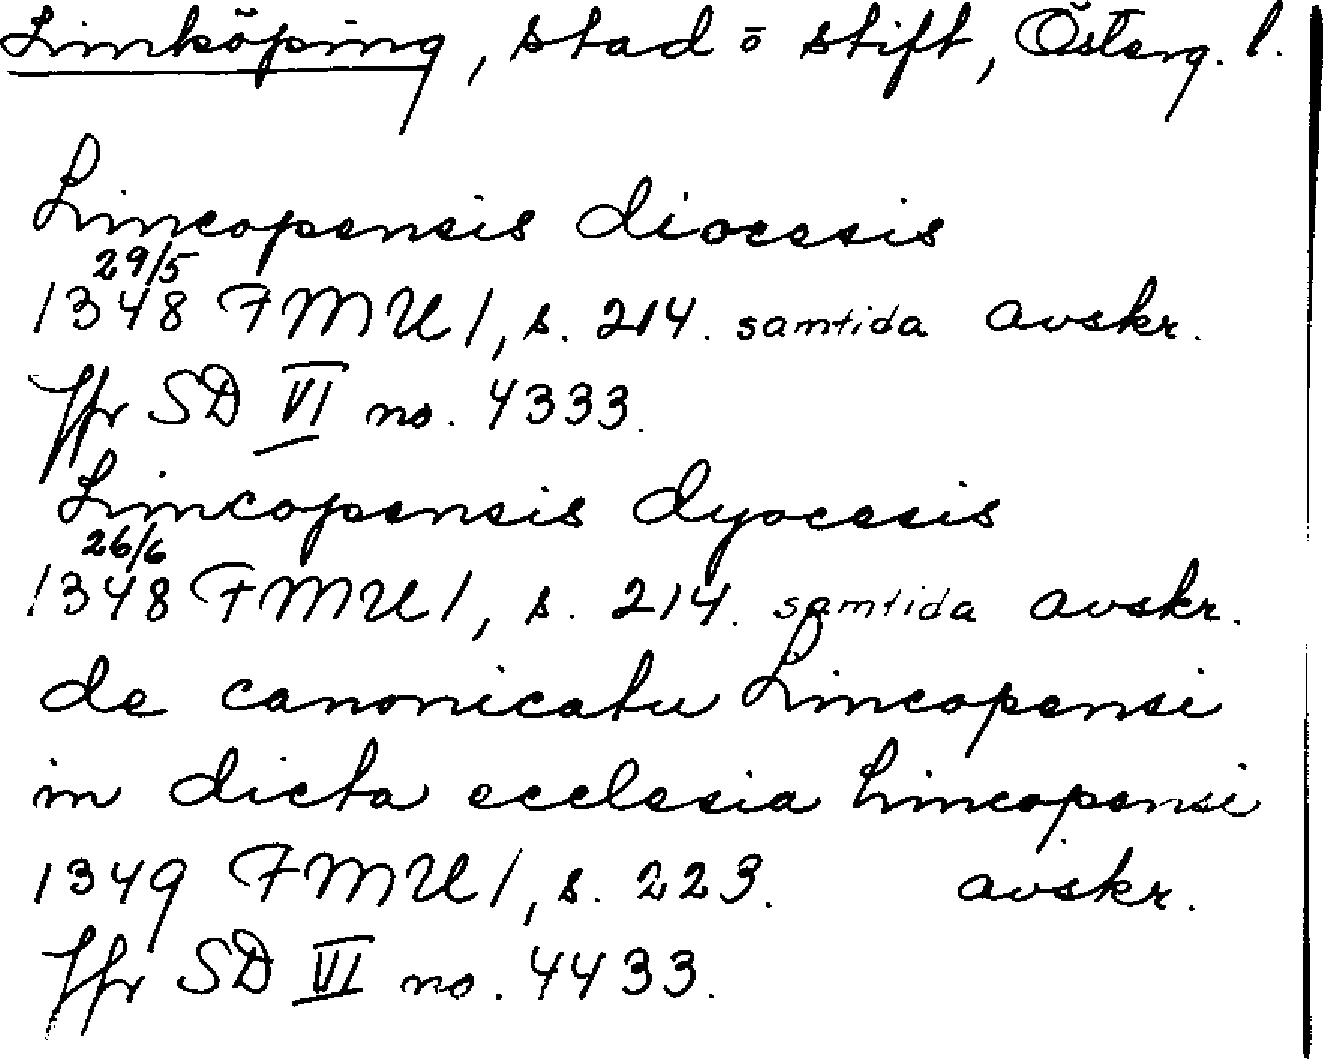 Linköping, stad o stift, Österg. l.
Lincopensis diocesis
29/5
1348 FMU 1, s. 214. samtida avskr.
Jfr SD VI no. 4333.
Lincopensis dyocesis
26/6
1348 FMU 1, s. 214. samtida avskr.
de canonicatu Lincopensi
in dicta ecclesia Lincopensi
1349 FMU 1, s. 223. avskr.
Jfr SD VI no. 4433.